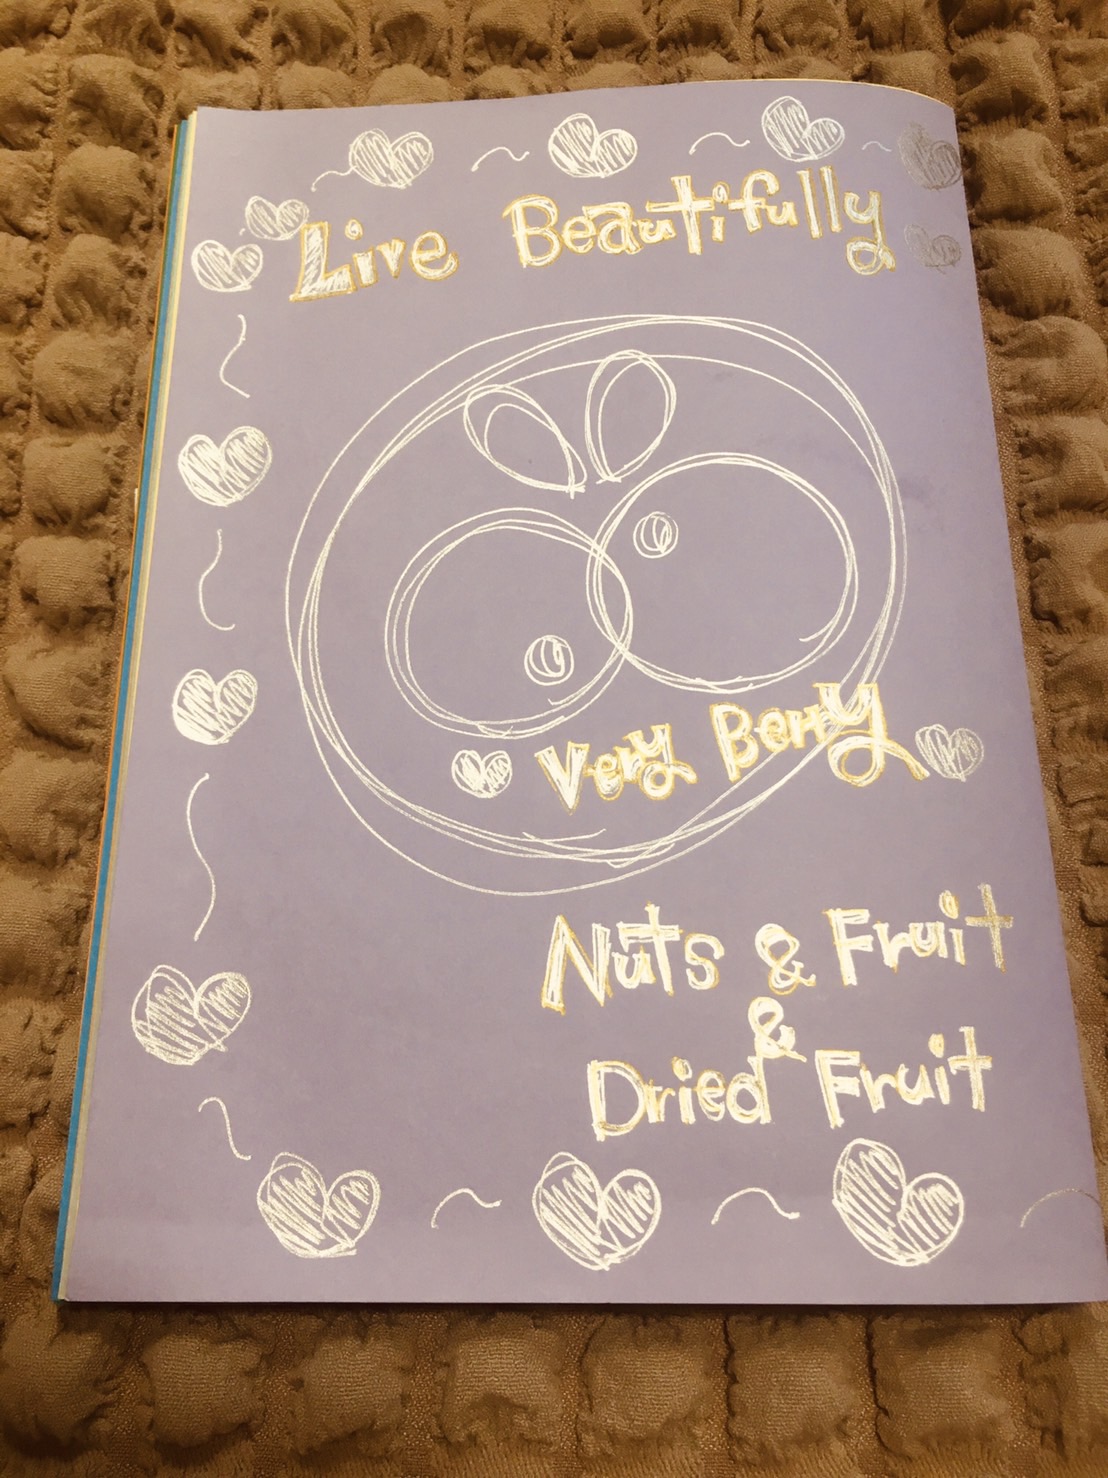 Live Beautifully
Very Berry
Nuts & Fruit
&
Dried Fruit